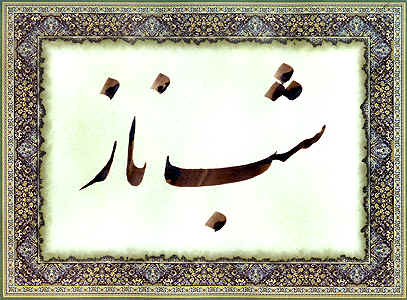 شب ناز